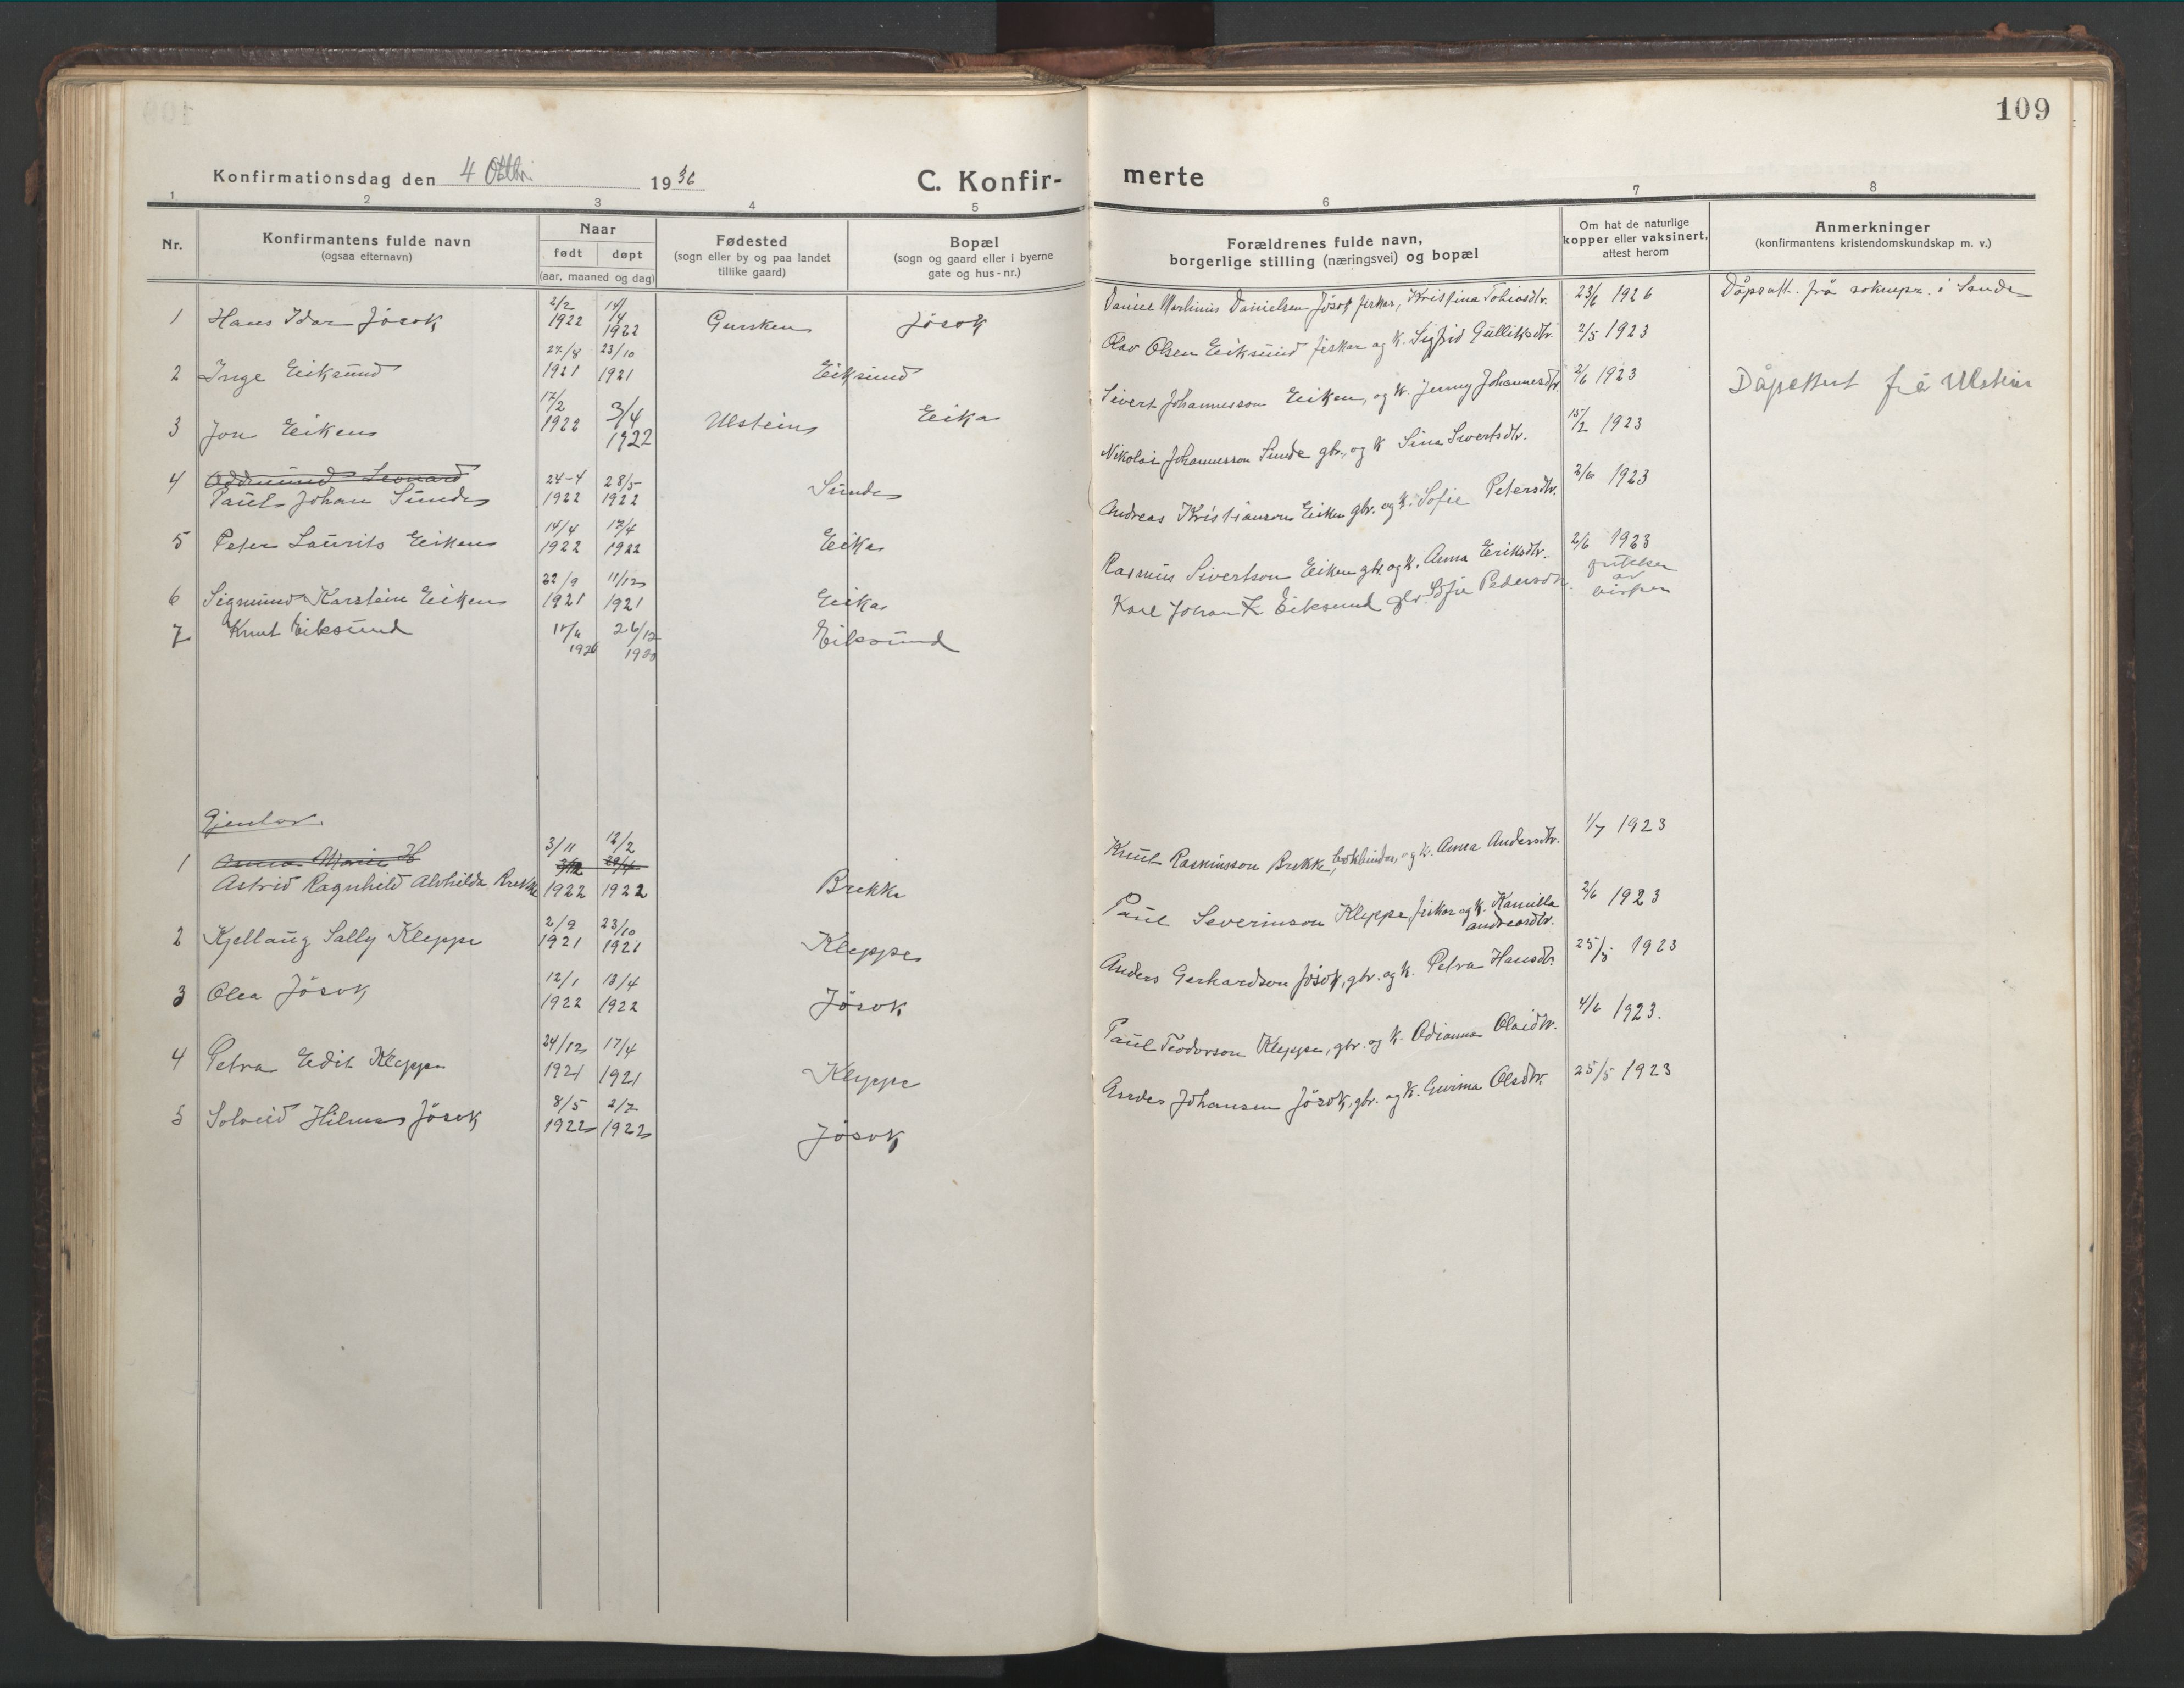 109
Konfirmationsdag den 4 Oktbr. 1936
C. Konfir-
merte
1 2 3 4 5 6 7 8
Nr.
Konfirmantens fulde navn
(ogsaa efternavn)
Naar
født døpt
(aar, maaned og dag)
Fødested
(sogn eller by og paa landet
tillike gaard)
Bopæl
(sogn og gaard eller i byerne
gate og hus-nr.)
Forældrenes fulde navn,
borgerlige stilling (næringsvei) og bopæl
Om hat de naturlige
kopper eller vaksinert,
attest herom
Anmerkninger
(konfirmantens kristendomskundskap m. v.)
1 Hans Idar Jösok 2/2 1922 14/4 1922 Gursken Jösok Daniel Martinus Danielsen Jösok fiskar, Kristina Tobiasdtr. 23/6 1926 Dåpsatt. frå soknepr. i Sande
2 Inge Eiksund 27/8 1921 23/10 1921 Eiksund Olav Olsen Eiksund fiskar og k. Sigfrid Gulliksdtr. 2/5 1923
3 Jon Eiken 17/2 1922 3/4 1922 Ulstein Eika Sivert Johannesson Eiken, og k. Jenny Johannesdtr. 2/6 1923 Dåpsattest frå Ulstein
4 Oddmund Leonard
Paul Johan Sunde 24-4 1922 28/5 1922 Sunde Nikolai Johannesson Sunde gbr., og k Sina Sivertsdtr. 15/2 1923
5 Peter Laurits Eiken 14/4 1922 17/4 1922 Eika Andreas Kristianson Eiken gbr. og k. Sofie Petersdtr. 2/6 1923
6 Sigmund Karstein Eiken 22/9 1921 11/12 1921 Eika Rasmus Sivertson Eiken gbr. og k. Anna Eriksdtr. 2/6 1923
7 Knut Eiksund 26/12 Eiksund Karl Johan Eiksund gbr. Sofie Pedersdtr.
Gjentor.
1 Anna Marie H
Astrid Ragnhild Alvhilda Brekke 3/11 1922 12/2 1922 Brekke Knut Rasmusson Brekke, bokbindar, og k. Anna Andersdtr. 1/7 1923
2 Kjellaug Sally Kleppe 2/9 1921 23/10 1921 Kleppe Paul Severinson Kleppe, fiskar og k. Kamilla
Andreasdtr. 2/6 1923
3 Olea Jösok 12/1 1922 13/4 1922 Jösok Anders Gerhardson Jösok, gbr. og k. Petra Hansdtr. 25/5 1923
4 Petra Edit Kleppe 24/12 1921 17/4 1921 Kleppe Paul Teodorson Kleppe, gbr. og k. Odianna Olaidtr. 4/6 1923.
5 Solveid Hilma Jösok 8/5 1922 2/7 1922 Jösok Anders Johansen Jösok, gbr. og k. Gurina Olsdtr. 25/5 1923